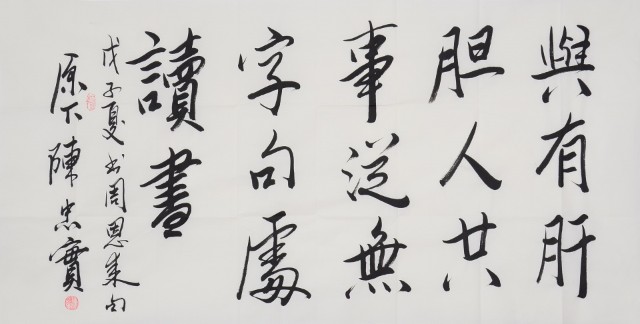 與有肝
胆人共
事從無
字句處
讀書
戊子夏書周恩來句
原下陳忠實